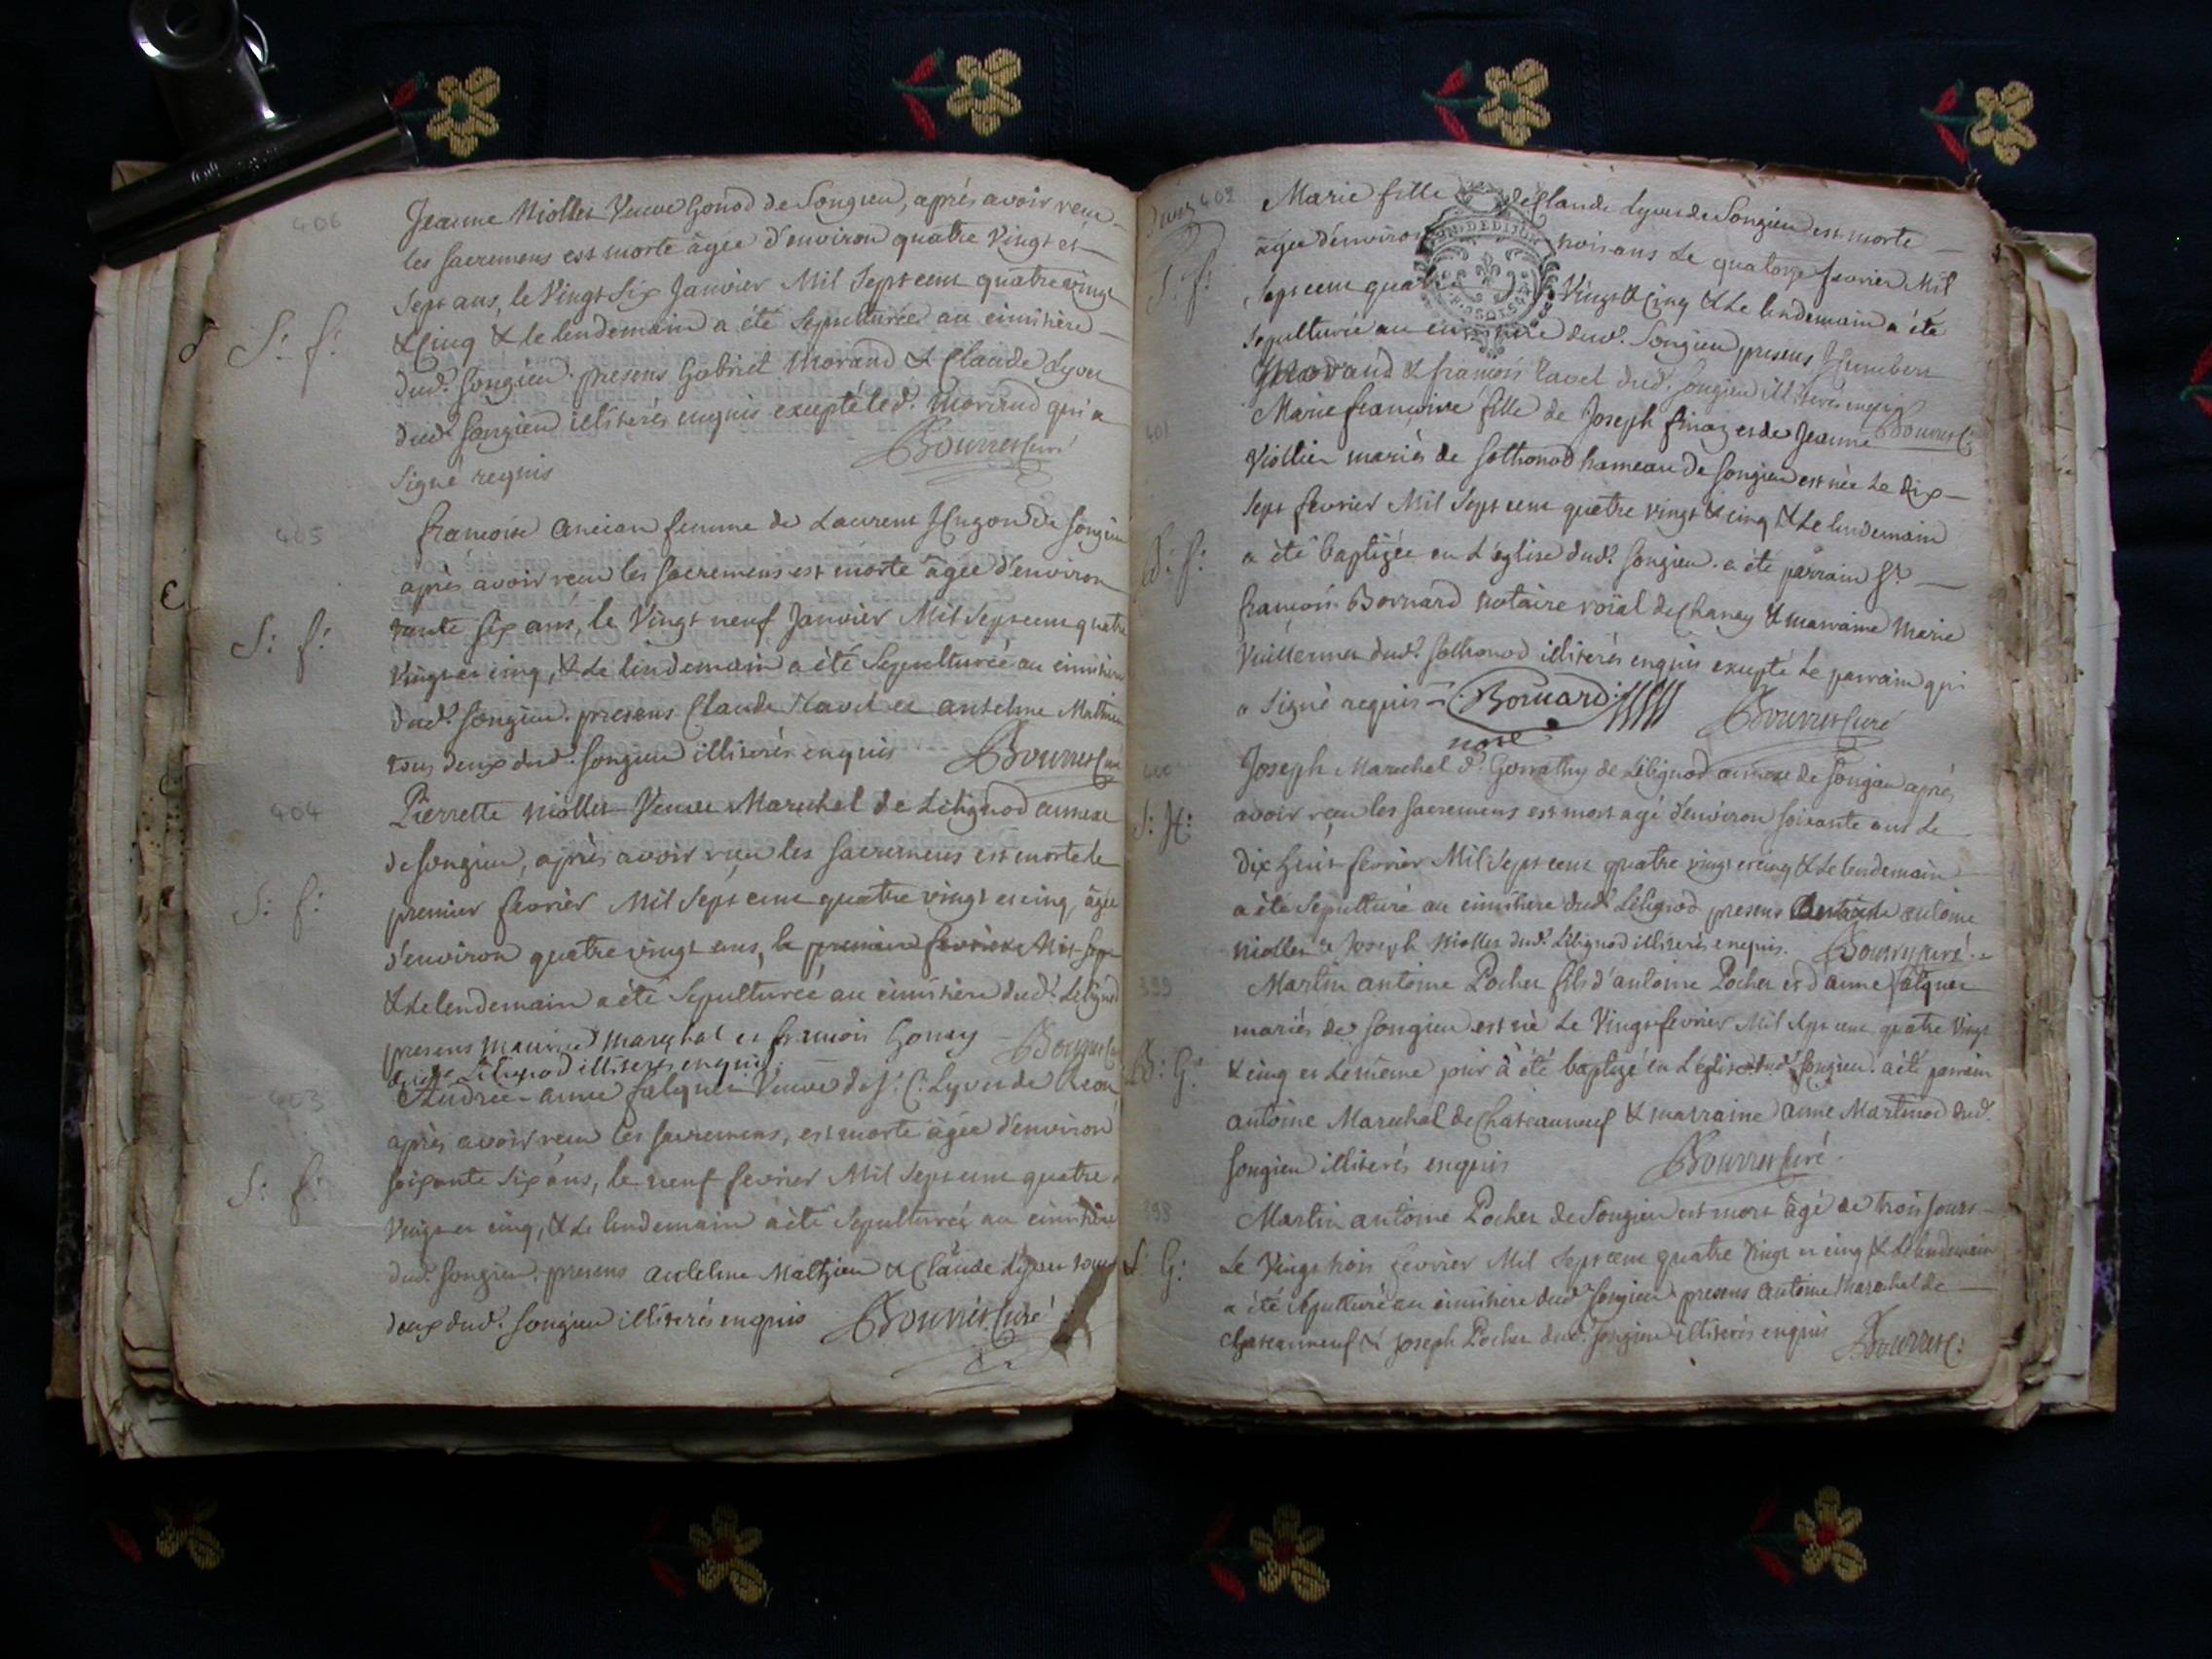 406
Jeanne Niollet Veuve Gonod de Songieu, après avoir reçu
les sacremens est morte âgée d'environ quatre Vingt et
Sept ans, le Vingt Six Janvier Mil Sept cent quatre vingt
& Cinq & le lendemain a été Sepulturée au cimitière
S: f:
dud.t Songieu. presens Gabriel Morand & Claude Lyvet
dud.t Songieu illiterés enquis excepté led.t Morand qui a
signé requis Bouvret curé
405
francoise Ancian femme de Laurent Hugon de Songieu
après avoir reçu les sacremens est morte âgée d'environ
trente six ans, le Vingt neuf Janvier Mil Sept cent quatre
S: f:
Vingt et cinq, & Le lendemain a été Sepulturée au cimitiere
dud.t Songieu. presens Claude Ravel et antelme Mathieu
tous deux dud.t Songieu illiterés enquis Bouvret Curé
404
Pierrette Niollet Veuve Marechal de Lilignod annexe
de Songieu, après avoir reçu les sacremens est morte le
S: f:
premier fevrier Mil Sept cent quatre vingt et cinq, âgée
d'environ quatre vingt ans, le premier fevrier Mil Sept
& Le lendemain a été Sepulturée au cimitière dud.t Lilignod
presens maurice marechal et francois Gonay Bouvret
dud.t Lilignod illiterés enquis
403
Andrée-anne falquet Veuve de S.r C. Lyvet de
après avoir reçu les sacremens, est morte âgée d'environ
S: f:
soixante Six ans, le neuf fevrier Mil Sept cent quatre
Vingt et cinq, & Le lendemain a été Sepulturée au cimitière
dud.t Songieu. presens antelme Mathieu & Claude Lyvet tous
deux dud.t Songieu illiterés enquis Bouvret Curé
402
Marie fille de Claude Lyvet de Songieu est morte
âgée d'environ trois ans Le quatorze fevrier Mil
S. f.
Sept cent quatre Vingt & Cinq & Le lendemain a été
Sepulturée au cimitiere dud.t Songieu, presens Humbert
Morand & francois Ravel dud.t Songieu illiterés enquis
Bouvret C.
401
Marie francoise fille de Joseph finaz et de Jeanne
Viollier mariés de Sothonod hameau de Songieu est née Le dix
Sept fevrier Mil Sept cent quatre vingt & cinq & Le lendemain
B: f:
a été baptizée en L'église dud.t Songieu. a été parrain S.r
francois Bornard notaire roïal de Chanay & marraine Marie
Vuillermet dud.t Sothonod illiterés enquis excepté Le parrain qui
a Signé requis Bornard Bouvret Curé
nore
400
Joseph Marechal d.t Gorrathy de Lilignod annexe de Songieu après
S: H:
avoir reçu les sacremens est mort agé d'environ soixante ans Le
dix huit fevrier Mil Sept cent quatre vingt et cinq & Le lendemain
a été Sepulturé au cimitiere dud.t Lilignod presens antoine
Niollet & Joseph Niollet dud.t Lilignod illiterés enquis. Bouvret curé
399
Martin antoine Pochet fils d'antoine Pochet et d'anne falquet
mariés de Songieu est né Le Vingt fevrier Mil Sept cent quatre Vingt
B: G:
& cinq et Le même jour à été baptizé en L'église dud.t Songieu. a été parrain
antoine Marechal de Chateauneuf & marraine anne Martinod dud.t
Songieu illiterés enquis Bouvret Curé
398
Martin antoine Pochet de Songieu est mort âgé de trois jours
S: G:
Le Vingt trois fevrier Mil Sept cent quatre Vingt et cinq & Le lendemain
a été Sepulturé au cimitiere dud.t Songieu. presens antoine Marechal de
Chateauneuf & Joseph Pochet dud.t Songieu illiterés enquis Bouvret C: